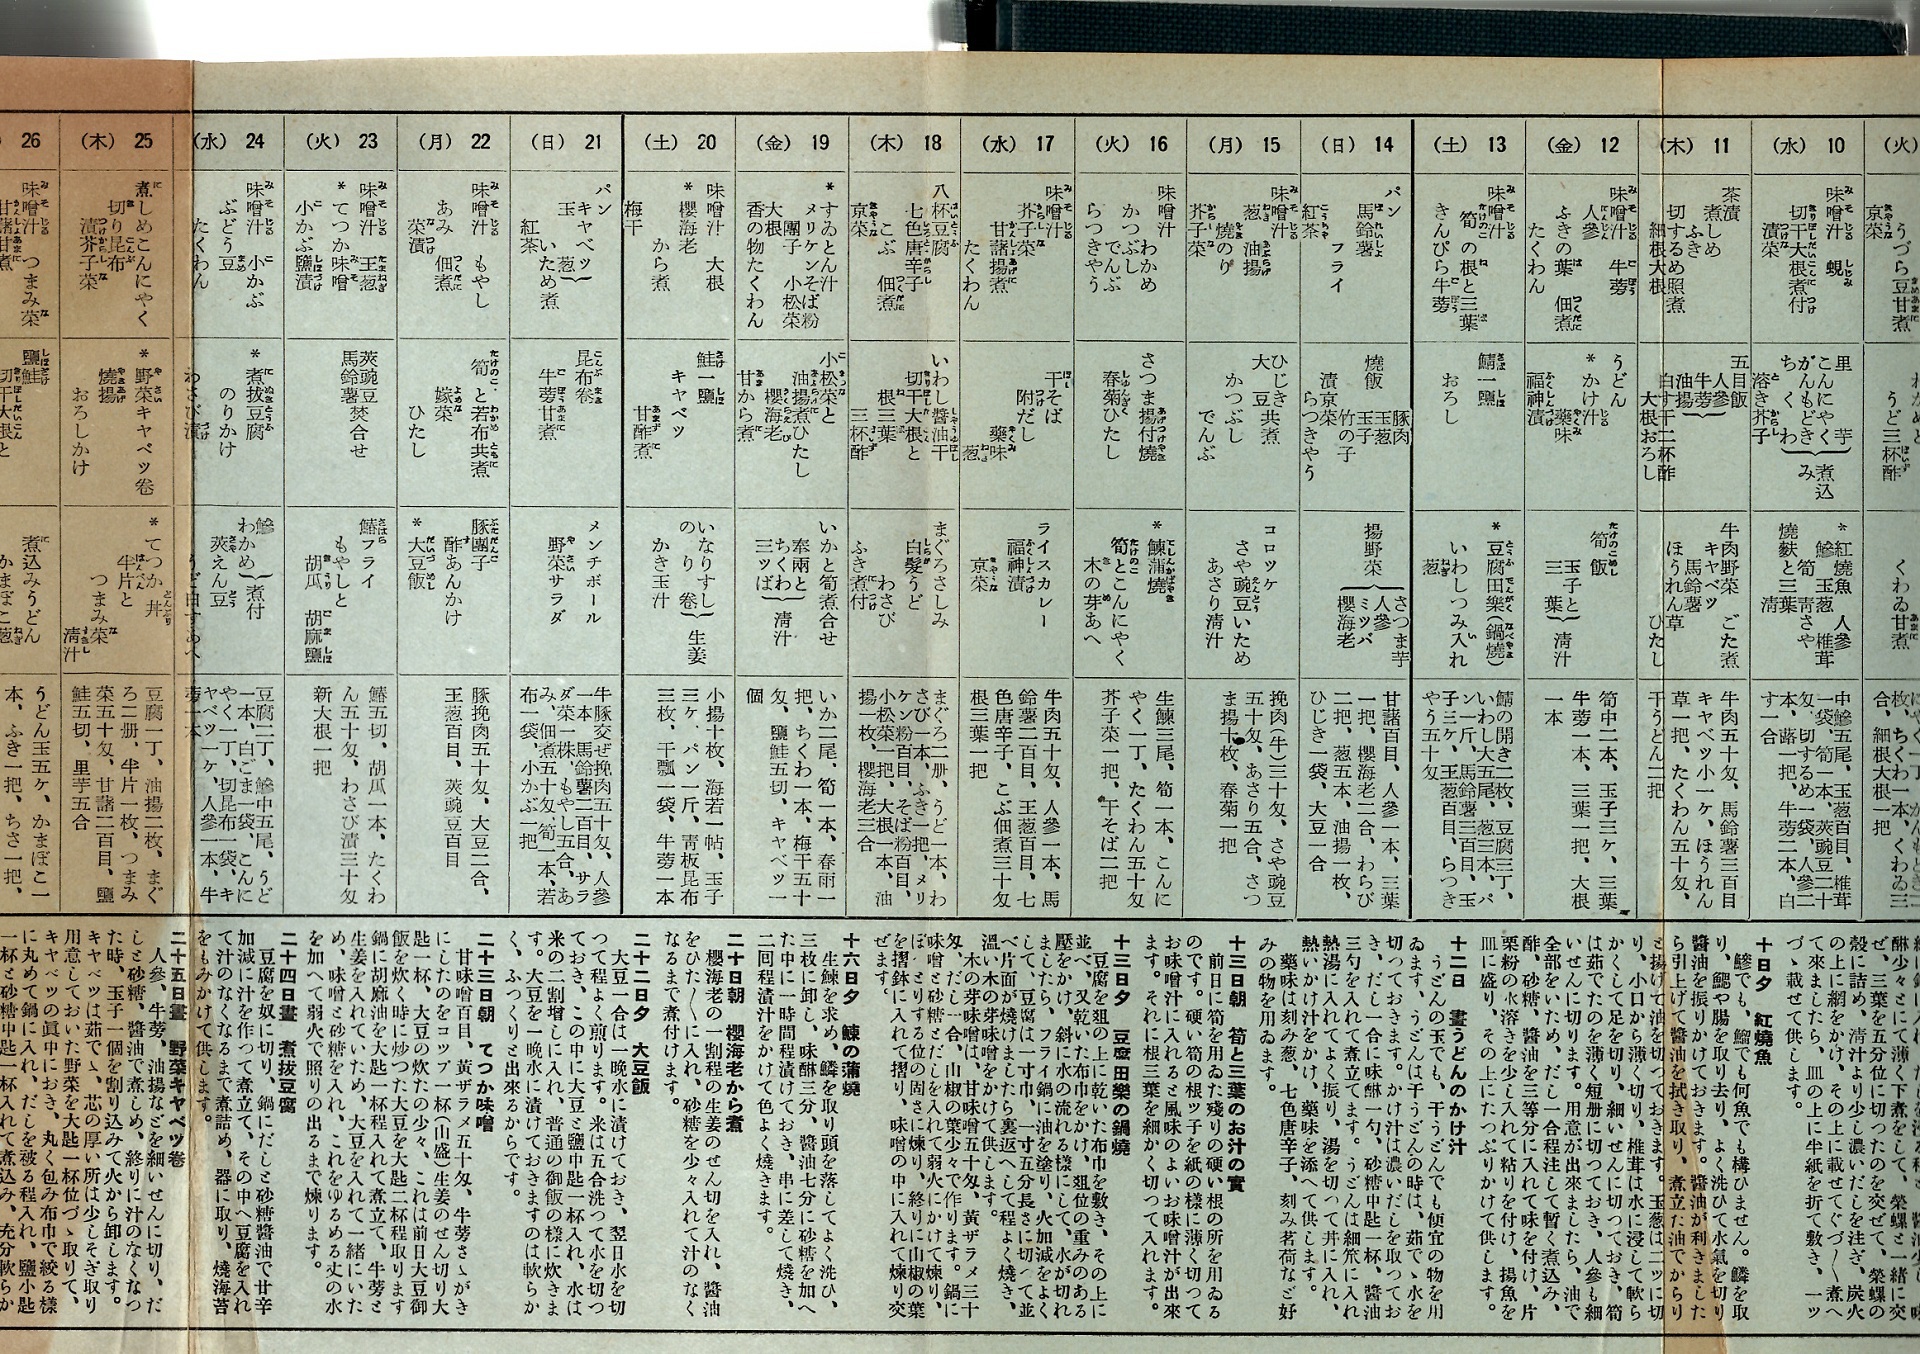 (火)
うづら豆甘煮
京菜
うど三杯酢
くわゐ甘煮
枚、ちくわ一本、くわゐ三
合、細根大根一把
10
(水)
味噌汁 蜆
切干大根煮付
漬菜
里芋
こんにやく
がんもどき
ちくわ
煮込み
溶き芥子
*紅燒魚
鯵 玉葱 人參
筍 靑さや 椎茸
燒麩と三葉 淸汁
中鯵五尾、玉葱百目、椎茸
一袋、筍一本、莢豌豆二十
匁、切するめ一袋、人參二
本、蕗一把、牛蒡二本、白
す一合
11
(木)
茶漬
煮しめ
ふき
切するめ照煮
細根大根
五目飯
人參
牛蒡
油揚
白す干二杯酢
大根おろし
牛肉野菜 ごた煮
キャベツ
馬鈴薯
ほうれん草 ひたし
牛肉五十匁、馬鈴薯三百目
キャベツ小一ケ、ほうれん
草一把、たくわん五十匁、
干うどん二把
12
(金)
味噌汁 牛蒡
人參
ふきの葉 佃煮
たくわん
うどん
*かけ汁
藥味
福神漬
筍飯
玉子と
三葉
淸汁
筍中二本、玉子三ケ、三葉
牛蒡一本、三葉一把、大根
一本
13
(土)
味噌汁
筍の根と三葉
きんぴら牛蒡
鯖一鹽
おろし
*豆腐田樂(鍋燒)
いわしつみ入れ
葱
鯖の開き二枚、豆腐三丁、
いわし大五尾、葱三本、パ
ン一斤、馬鈴薯三百目、玉
子三ケ、玉葱百目、らつき
やう五十匁
14
(日)
パン
馬鈴薯 フライ
紅茶
燒飯
豚肉
玉葱
玉子
竹の子
漬京菜
らつきやう
揚野菜
さつま芋
人參
ミツバ
櫻海老
甘諸百目、人參一本、三葉
一把、櫻海老二合、わらび
二把、葱五本、油揚一枚、
ひじき一袋、大豆一合
15
(月)
味噌汁 油揚
葱
燒のり
芥子菜
ひじき
大豆
共煮
かつぶし
でんぶ
コロツケ
さや豌豆いため
あさり淸汁
挽肉(牛)三十匁、さや豌豆
五十匁、あさり五合、さつ
ま揚十枚、春菊一把
16
(火)
味噌汁 わかめ
かつぶし
でんぶ
らつきやう
さつま揚付燒
春菊ひたし
*鰊蒲燒
筍とこんにやく
木の芽あへ
生鰊三尾、筍一本、こんに
やく一丁、たくわん五十匁
芥子菜一把、干そば二把
17
(水)
味噌汁
芥子菜
甘諸揚煮
たくわん
干そば
附だし
藥味
葱
ライスカレー
福神漬
京菜
牛肉五十匁、人參一本、馬
鈴薯二百目、玉葱百目、七
色唐辛子、こぶ佃煮三十匁
根三葉一把
18
(木)
八杯豆腐
七色唐辛子
こぶ 佃煮
京菜
いわし醬油干
切干大根と
根三葉
三杯酢
まぐろさしみ
白髮うど
わさび
ふき煮付
まぐろ二册、うど一本、わ
さび一本、ふき一把、メリ
ケン粉百目、そば粉百目、
小松菜一把、大根一本、油
揚一枚、櫻海老三合
19
(金)
*すゐとん汁
メリケンそば粉
團子 小松菜
大根
香の物たくわん
小松菜と
油揚煮ひたし
櫻海老
甘から煮
いかと筍煮合せ
奉雨と
ちくわ
三ツば
淸汁
いか二尾、筍一本、春雨一
把、ちくわ一本、梅干五十
匁、鹽鮭五切、キャベツ一
個
20
(土)
味噌汁 大根
*櫻海老
から煮
梅干
鮭一鹽
キャベツ
甘酢煮
いなりすし
のり卷
生姜
かき玉汁
小揚十枚、海若一帖、玉子
三ケ、パン一斤、靑板昆布
三枚、干瓢一袋、牛蒡一本
21
(日)
パン
キャベツ
玉葱
いため煮
紅茶
昆布卷
牛蒡甘煮
メンチボール
野菜サラダ
牛豚交ぜ挽肉五十匁、人參
一本、馬鈴薯二百目、サラ
ダ菜一株、もやし五合、あ
み、佃煮五十匁、筍一本、若
布一袋、小かぶ一把
22
(月)
味噌汁 もやし
あみ 佃煮
菜漬
筍と若布共煮
嫁菜
ひたし
豚團子
酢あんかけ
*大豆飯
豚挽肉五十匁、大豆二合、
玉葱百目、莢豌豆百目
23
(火)
味噌汁 玉葱
*てつか味噌
小かぶ鹽漬
莢豌豆
馬鈴薯
焚合せ
鰆フライ
もやしと
胡瓜 胡麻鹽
鰆五切、胡瓜一本、たくわ
ん五十匁、わさび漬三十匁
新大根一把
24
(水)
味噌汁 小かぶ
ぶどう豆
たくわん
*煮拔豆腐
のりかけ
わさび漬
鯵
わかめ
煮付
莢えん豆
うど白すあへ
豆腐二丁、鯵中五尾、うど
一本、白ごま一袋、こんに
やく一丁、切昆布一袋、キ
ヤベツ一ケ、人參一本、牛
蒡一本
25
(木)
煮しめこんにやく
切り昆布
漬芥子菜
*野菜キャベツ卷
燒揚
おろしかけ
*てつか丼
半片と
つまみ菜
淸汁
豆腐一丁、油揚二枚、まぐ
ろ二册、半片一枚、つまみ
菜五十匁、甘諸二百目、鹽
鮭五切、里芋五合
26
味噌汁 つまみ菜
甘諸甘煮
鹽鮭
切干大根と
煮込みうどん
かまぼこ葱
うどん玉五ケ、かまぼこ一
本、ふき一把、ちさ一把、
酣少々とにて薄く下煮をして、榮螺と一緒に交
ぜ、三葉を五分位に切つたのを交ぜて、榮螺の
殼に詰め、淸汁より少し濃いだしを注ぎ、炭火
の上に網をかけ、その上に載せてぐづ〱煮へ
て來ましたら、皿の上に半紙を折て敷き、一ッ
づゝ載せて供します。
十日夕 紅燒魚
鯵でも、鰡でも何魚でも構ひません。鱗を取
り、鰓や腸を取り去り、よく洗ひて水氣を切り
醬油を振りかけておきます。醬油が利きました
ら引上げて醬油を拭き取り、煮立た油でからり
と揚げて油を切つておきます。玉葱は二ッに切
り、小口から薄く切り、椎茸は水に浸して軟ら
かくして足を切り、細いせんに切つておき、筍
は茹でたのを薄く短册に切つておき、人參も細
いせんに切ります。用意が出來ましたら、油で
全部をいため、だし一合程注して暫く煮込み、
酢、砂糖、醬油を三等分に入れて味を付け、片
栗粉の水溶きを少し入れて粘りを付け、揚魚を
皿に盛り、その上にたつぷりかけて供します。
十二日 晝うどんのかけ汁
うどんの玉でも、干うどんでも便宜の物を用
ゐます、うどんは干うどんの時は、茹で、水を
切つておきます。かけ汁は濃いだしを取つてお
き、だし一合に味醂一勺、砂糖中匙一杯、醬油
三勺を入れて煮立てます。うどんは細笊に入れ
熱湯に入れてよく振り、湯を切つて丼に入れ、
熱いかけ汁をかけ、藥味を添へて供します。
藥味は刻み葱、七色唐辛子、刻み茗荷など好
みの物を用ゐます。
十三日朝 筍と三葉のお汁の實
前日に筍を用ゐた殘りの硬い根の所を用ゐる
のです。硬い筍の根ッ子を紙の樣に薄く切つて
お味噌汁に入れると風味のよいお味噌汁が出來
ます。それに根三葉を細かく切つて入れます。
十三日夕 豆腐田樂の鍋燒
豆腐を俎の上に乾いた布巾を敷き、その上に
並べ、又乾いた布巾をかけ、俎位の重みのある
壓をかけ、斜に水の流れる樣にして、水が切れ
ましたら、フライ鍋に油を塗り、火加減をよく
して、豆腐は一寸巾、一寸五分長さに切つて並
べ、片面が燒けましたら裏返へして程よく燒き、
溫い木の芽味噌をかけて供します。
木の芽味噌は、甘味噌五十匁、黃ザラメ三十
匁、だし一合、山椒の葉少々で作ります。鍋に
味噌と砂糖とだしを入れて弱火にかけて煉り、
ぽとりとする位の固さに煉り、終りに山椒の葉
を摺鉢に入れて摺り、味噌の中に入れて煉り交
ぜます。
十六日夕 鰊の蒲燒
生鰊を求め、鱗を取り頭を落してよく洗ひ、
三枚に卸し、味醂三分、醬油七分に砂糖を加へ
た中に一時間程漬けておき、串に差して燒き、
二三回程漬汁をかけて色よく燒きます。
二十日朝 櫻海老から煮
櫻海老の一割程の生姜のせん切を入れ、醬油
をひた〱に入れ、砂糖を少々入れて汁のなく
なるまで煮付けます。
二十二日夕 大豆飯
大豆一合は一晩水に漬けておき、翌日水を切
つて程よく煎ります。米は五合洗つて水を切つ
ておき、この中に大豆と鹽中匙一杯入れ、水は
米の二割增しに入れ、普通の御飯の樣に炊きま
す。大豆を一晩水に漬けておきますのは軟らか
く、ふつくりと出來るからです。
二十三日朝 てつか味噌
甘味噌百目、黃ザラメ五十匁、牛蒡さゝがき
にしたのをコップ一杯(山盛)生姜のせん切り大
匙一杯、大豆の炊たの少々、これは前日大豆御
飯を炊く時に炒つた大豆を大匙二杯程取ります
鍋に胡麻油を大匙一杯程入れて煮立て、牛蒡と
生姜を入れていため、大豆を入れて一緒にいた
め、味噌と砂糖を入れ、これをゆるめる丈の水
を加へて弱火で照りの出るまで煉ります。
二十四日晝 煮拔豆腐
豆腐を奴に切り、鍋にだしと砂糖醬油で甘辛
加減に汁を作つて煮立て、その中へ豆腐を入れ
て汁のなくなるまで煮詰め、器に取り、燒海苔
をもみかけて供します。
二十五日晝 野菜キャベツ卷
人參、牛蒡、油揚などを細いせんに切り、だ
しと砂糖、醬油で煮しめ、終りに汁のなくなつ
た時、玉子一個を割り込みて火から卸します。
キャベツは茹でゝ、芯の厚い所は少しそぎ取り
用意しておいた野菜を大匙一杯位づゝ取りて、
キャベツの眞中におき、丸く包み布巾で絞る樣
に丸めて鍋に入れ、だしを被る程入れ、鹽小匙
一杯と砂糖中匙一杯入れて煮込み、充分軟らか